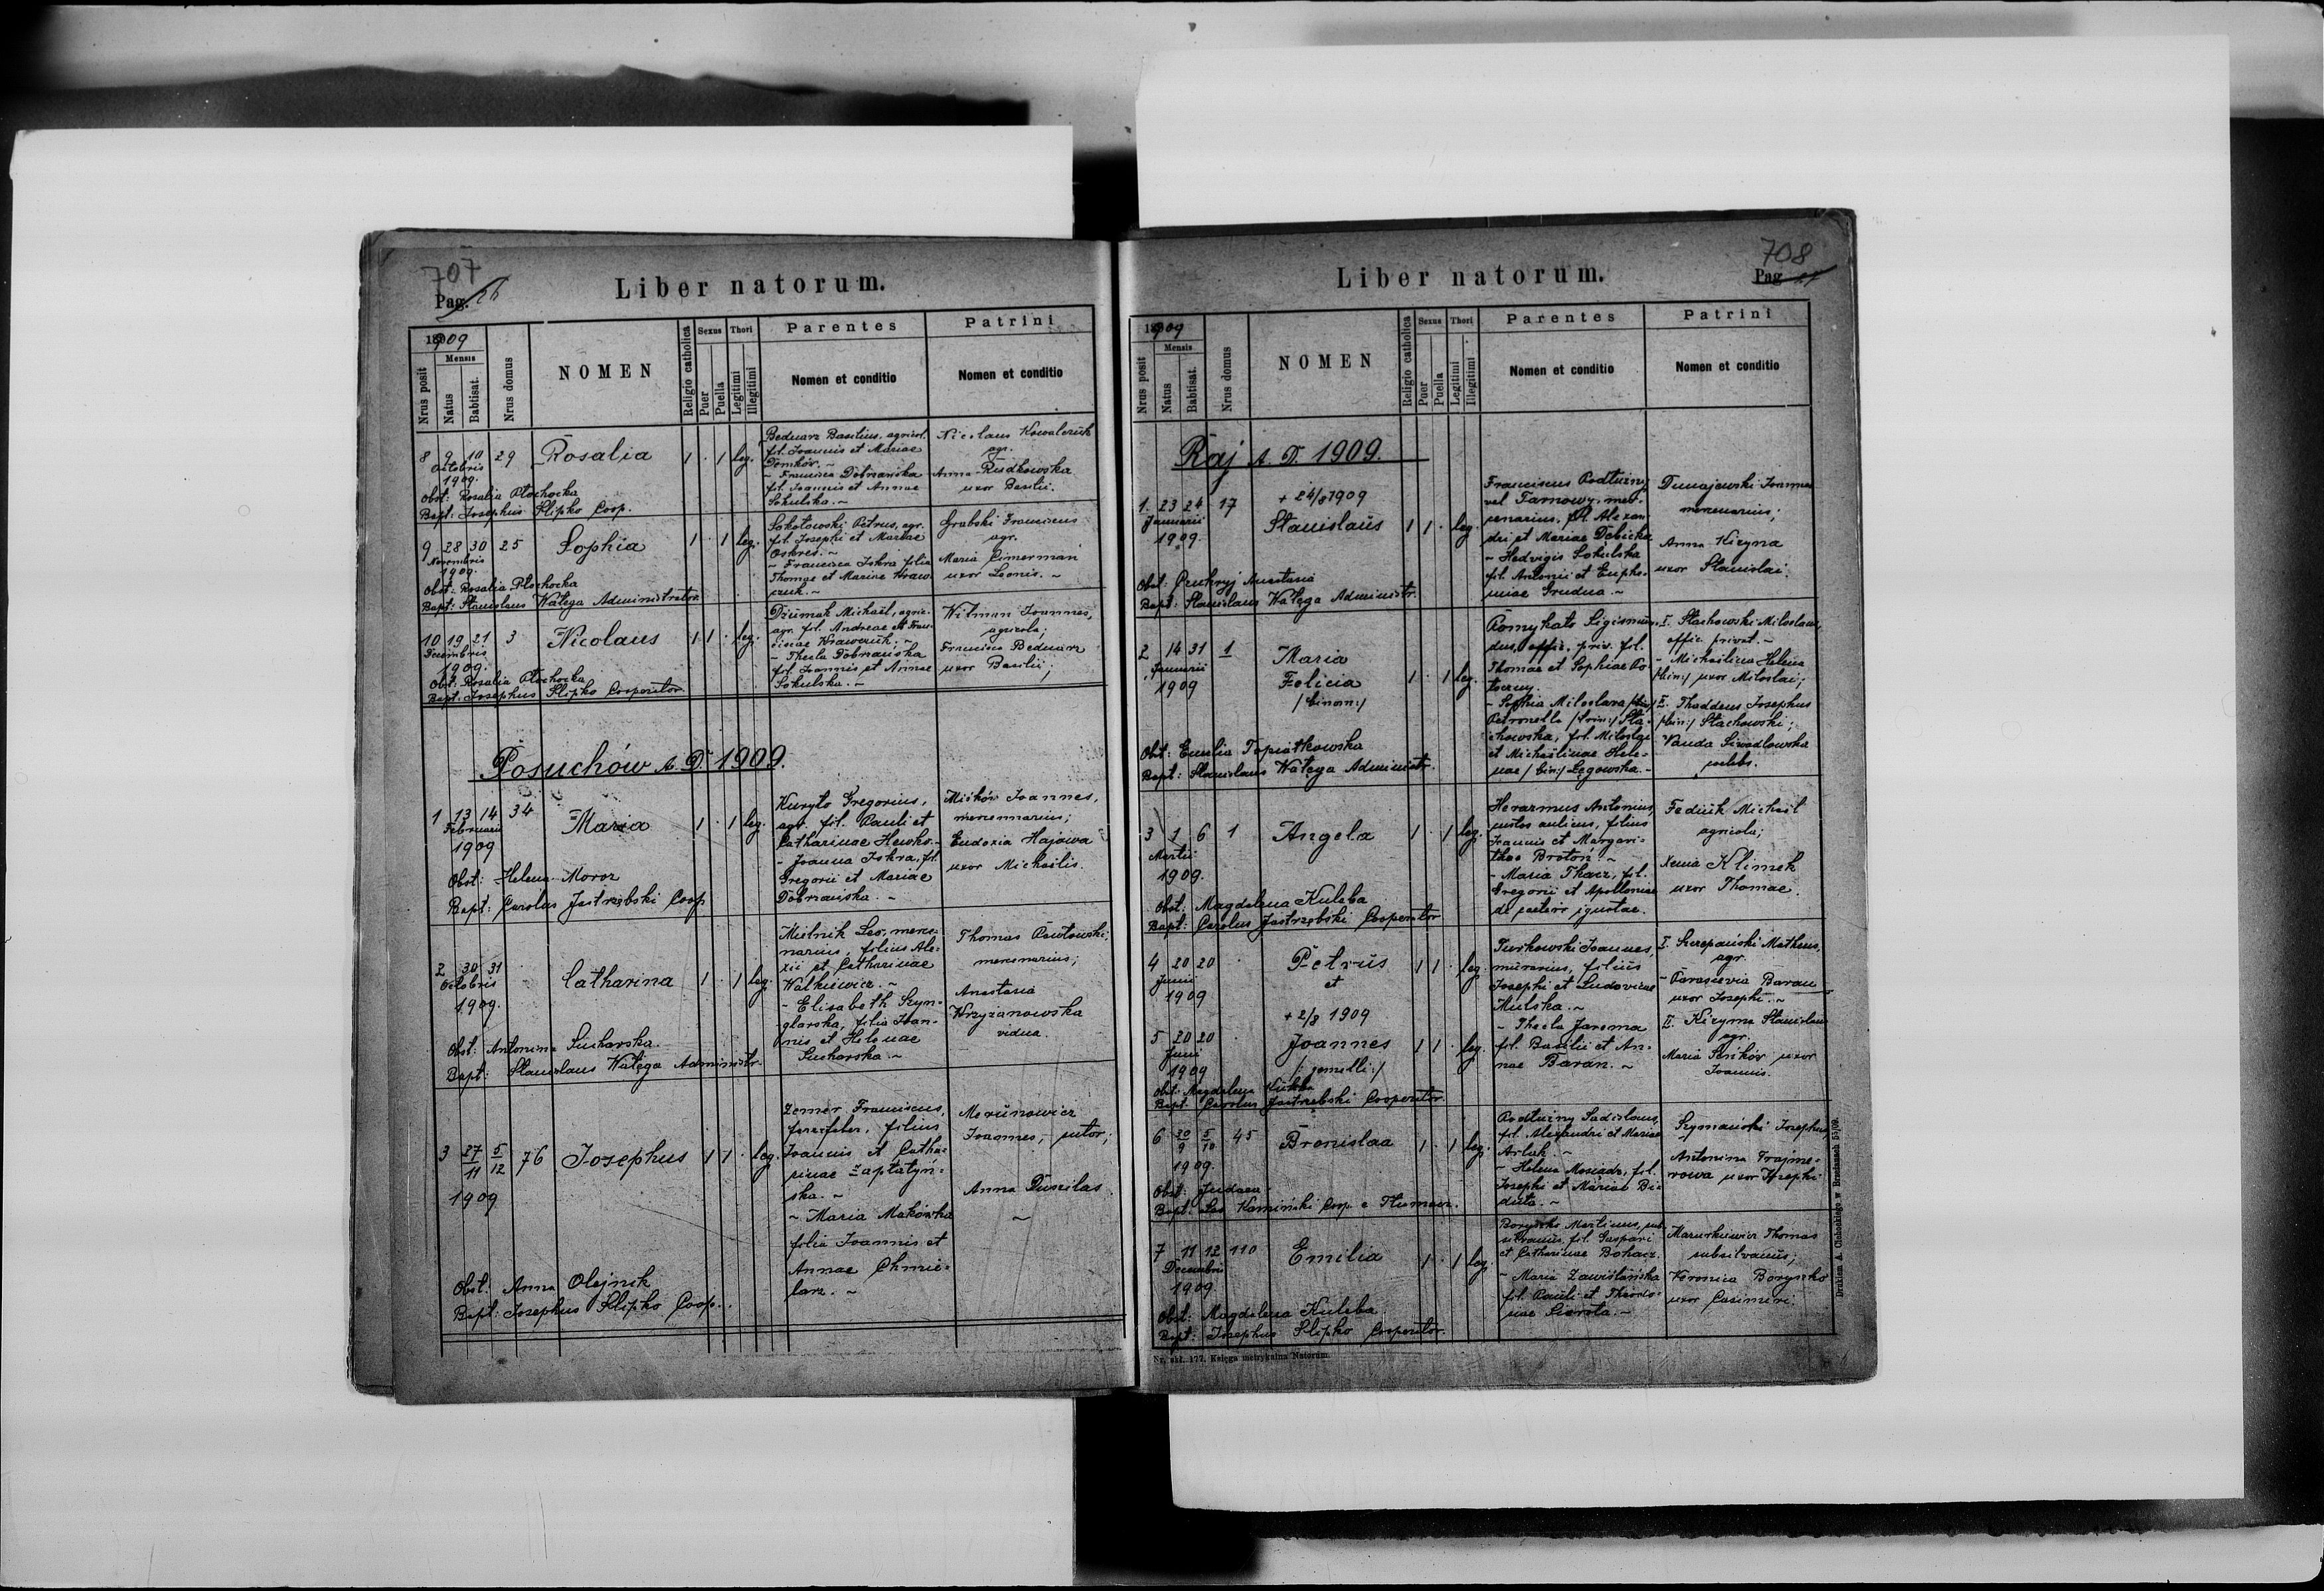 707
Pag. 26
Liber natorum.
1909
Mensis
Nrus posit
Natus
Babtisat.
Nrus domus
NOMEN
Religio catholica
Sexus
Puer
Puella
Thori
Legitimi
Illegitimi
Parentes
Nomen et conditio
Patrini
Nomen et conditio
8 9 10 29 Rosalia 1 . 1 leg.
Octobris
1909.
Obst: Rosalia Płochocka
Bapt: Josephus Slipko Coop.
Bednarz Basilius, agricol.
fil. Joannis et Mariae
Domków. ~
~ Francisca Dobrzańska
fil. Joannis et Annae
Sokulska. ~
Nicolaus Kowalczuk
agr.
Anna Rudkowska
uxor Basilii.
9 28 30 25 Sophia 1 . 1 leg.
Novembris
1909.
Obst: Rosalia Płochocka
Bapt: Stanislaus Watęga Administrator
Sokołowski Petrus, agr.
fil. Josephi et Mariae
~ Francisca Iskra filia
Thomae et Mariae Kraw-
czuk. ~
Grabski Franciscus
agr.
Maria Cimerman
uxor Leonis. ~
10 19 21 3 Nicolaus 1 1 . leg.
Decembris
1909.
Obst: Rosalia Płochocka
Bapt: Josephus Slipko Cooperator
Michael, agric.
agr. fil. Andreae et Fran-
ciscae Krawczuk. ~
~ Thecla Dobrzańska
fil. Joannis et Annae
Sokulska. ~
Witman Joannes,
agricola;
Francisca Bednarz
uxor Basilii;
Posuchów A. D. 1909.
1 13 14 34 Maria 1 . 1 leg.
Februarii
1909
Obst: Helena Moroz
Bapt: Carolus Jastrzębski Coop
Kuryło Gregorius,
agr. fil. Pauli et
Catharinae Hewko. ~
~ Joanna Iskra, fil.
Gregorii et Mariae
Dobrzańska. ~
Miśków Joannes,
mercennarius;
Eudoxia Hajowa
uxor Michaelis.
2 30 31 Catharina 1 . 1 leg.
Octobris
1909.
Obst: Antonina Sucharska.
Bapt: Stanislaus Watęga Administr.
Mielnik Leo, merce-
narius, filius Ale-
xii et Catharinae
Walkiewicz. ~
~ Elisabeth Szyn-
glarska, filia Joan-
nis et Helenae
Sucharska. ~
Thomas Pawłowski,
mercenarius;
Anastasia
Krzyżanowska
vidua.
3 27/11 5/12 76 Josephus 1 1 . leg.
1909
Obst: Anna Olejnik
Bapt: Josephus Slipko Coop.
Zemer Franciscus,
filius
Joannis et Catha-
rinae Zaptatyń-
ska. ~
~ Maria Makówka
filia Joannis et
Annae Chmie-
larz. ~
Merunowicz
Joannes, sutor;
Anna Duszilas
~
708
Pag. 27
Liber natorum.
1909
Mensis
Nrus posit
Natus
Babtisat.
Nrus domus
NOMEN
Religio catholica
Sexus
Puer
Puella
Thori
Legitimi
Illegitimi
Parentes
Nomen et conditio
Patrini
Nomen et conditio
Raj A. D. 1909.
1. 23 24 17 + 24/8 1909
Januarii Stanislaus 1 1 . leg.
1909.
Obst: Anastasia
Bapt: Stanislaus Watęga Administr.
Franciscus Podłużny
vel Tarnowy, mer-
cenarius, fil. Alexan-
dri et Mariae Dębicka
~ Hedvigis Sokulska
fil. Antonii et Euphe-
miae Grudna. ~
Dunajewski Joannes
mercenarius;
Anna Kizyma
uxor Stanislai.
2 14 31 1 Maria
Januarii Felicia 1 . 1 leg.
1909 /binom:/
Obst: Emilia
Bapt: Stanislaus Watęga Administr.
Romykats Sigismun-
dus, offic. priv. fil.
Thomae et Sophiae Po-
~ Sophia Miloslava /bin:/
Petronella /trin:/ Sta-
chowska, fil. Miloslai
et Michaelinae Hele-
nae /bin:/ Łęgowska. ~
I. Stachowski Miloslaus,
offic. privat. ~
~ Michaelina Helena
/bin:/ uxor Miloslai;
II. Thaddeus Josephus
/bin:/ Stachowski;
Vanda Siwadlowska
caelebs.
3 1 6 1 Angela 1 . 1 leg.
Martii
1909.
Obst: Magdalena Kuleba
Bapt: Carolus Jastrzębski Cooperator
Herasmus Antonius,
custos aulicus, filius
Joannis et Margari-
thae Brotoń. ~
~ Maria Tkacz, fil.
Gregorii et Apolloniae
de caetero ignotae.
Feduk Michael
agricola;
Xenia Klimek
uxor Thomae.
4 20 20 Petrus 1 1 . leg.
Junii et
1909
+ 2/8 1909
5 20 20 Joannes 1 1 . leg.
Junii
1909 /: gemelli:/
Obst: Magdalena Kuleba
Bapt: Carolus Jastrzębski Cooperator.
Turkowski Joannes,
murarius, filius
Josephi et Ludovicae
Mulska. ~
~ Thecla Jarema
fil. Basilii et An-
nae Baran. ~
I. Szczepański Matheus,
agr.
~ Parascevia Baran
uxor Josephi. ~
II. Kizyma Stanislaus
agr.
Maria Seńków uxor
Joannis.
6 30/9 5/10 45 Bronislaa 1 . 1 leg.
1909.
Obst: Judaea
Bapt: Leo Kamiński Coop. e Tłumacz.
Podłużny Ladislaus,
fil. Alexandri et Mariae
Arluk. ~
~ Helena Moszadz, fil.
Josephi et Mariae Bie-
duta. ~
Szymański Josephus,
Antonina Trajme-
rowa uxor Josephi
7 11 12 110 Emilia 1 . 1 leg.
Decembris
1909.
Obst: Magdalena Kuleba
Bapt: Josephus Slipko Cooperator.
Boryszko Martinus, sub-
silvanus, fil. Gaspari
et Catharinae Bohacz.
~ Maria Zawiślańska
fil. Pauli et Theodo-
siae Sierota. ~
Mazurkiewicz Thomas
subsilvanus;
Veronica Boryszko
uxor Casimiri;
Nr. skł. 177. Księga metrykalna Natorum.
Drukiem A. Cichockiego w Brzeżanach 55/09.